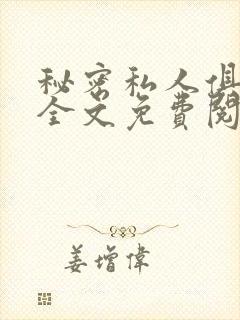 秘密私人俱
全文免費閱
姜增偉